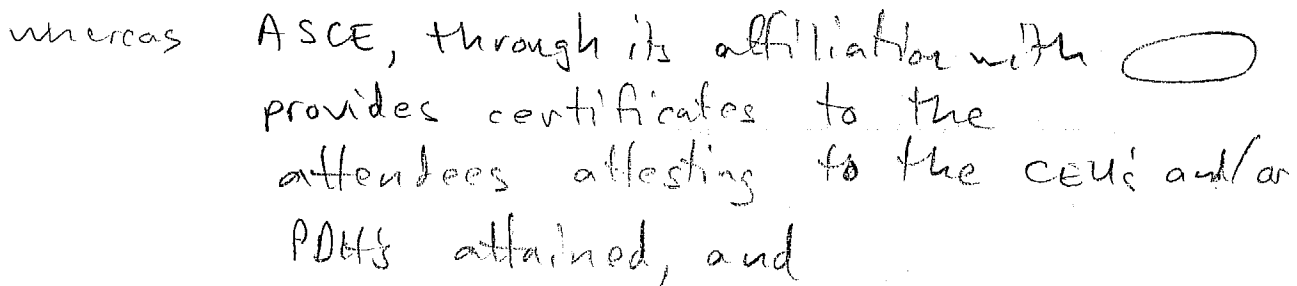 whereas ASCE, through its affiliation with
provides certificates to the
attendees attesting to the CEU's and/or
PDH's attained, and